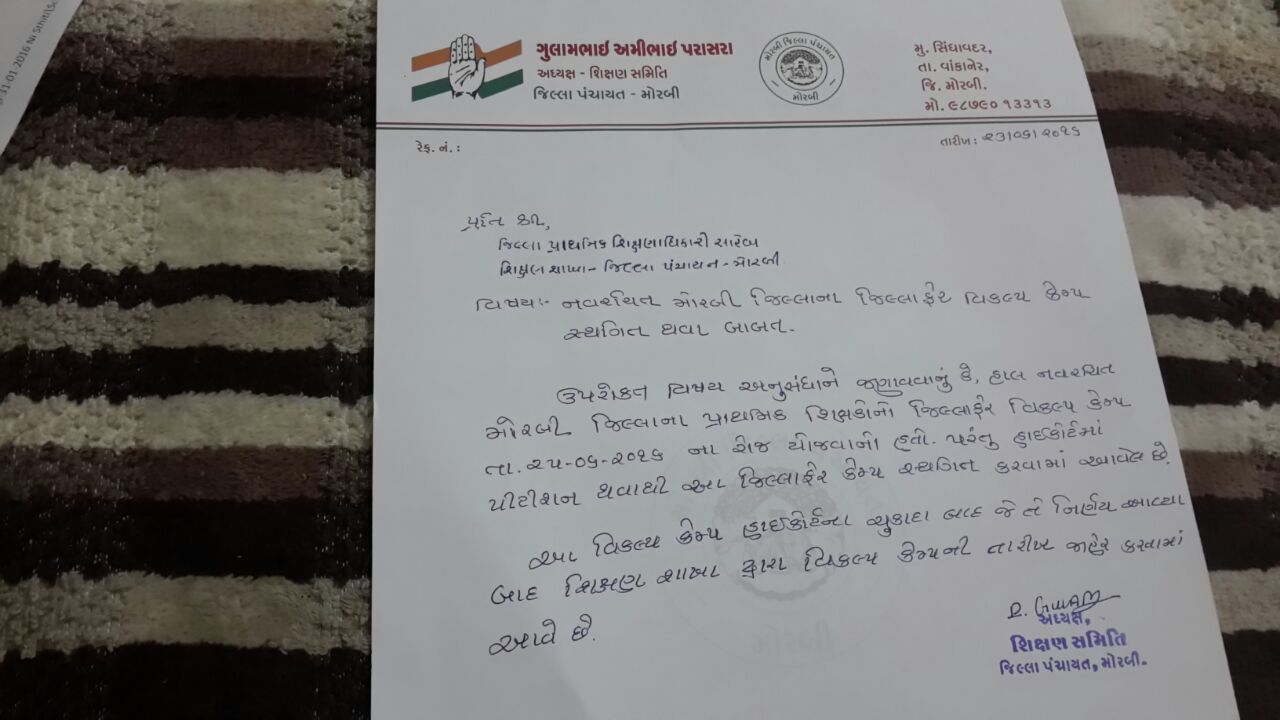 31-01-2016 Ni Sthiti\Sc
ગુલામભાઇ અમીભાઇ પરાસરા
અધ્યક્ષ - શિક્ષણ સમિતિ
જિલ્લા પંચાયત - મોરબી
મોરબી જિલ્લા પંચાયત
મોરબી
મુ. સિંધાવદર,
તા. વાંકાનેર,
જિ. મોરબી.
મો. ૯૮૭૯૦ ૧૩૩૧૩
રેફ. નં. :
તારીખ : ૨૩/૦૬/૨૦૧૬
પ્રતિ શ્રી,
જિલ્લા પ્રાથમિક શિક્ષણાધિકારી સાહેબ
શિક્ષણ શાખા - જિલ્લા પંચાયત - મોરબી
વિષય:- નવરચિત મોરબી જિલ્લાના જિલ્લાફેર વિકલ્પ કેમ્પ
સ્થગિત થવા બાબત.
ઉપરોકત વિષય અનુસંધાને જણાવવાનું કે, હાલ નવરચિત
મોરબી જિલ્લાના પ્રાથમિક શિક્ષકોનો જિલ્લાફેર વિકલ્પ કેમ્પ
તા. ૨૫-૦૬-૨૦૧૬ ના રોજ યોજવાનો હતો. પરંતુ હાઈકોર્ટમાં
પીટીશન થવાથી આ જિલ્લાફેર કેમ્પ સ્થગિત કરવામાં આવેલ છે.
આ વિકલ્પ કેમ્પ હાઈકોર્ટના ચુકાદા બાદ જે તે નિર્ણય આવ્યા
બાદ શિક્ષણ શાખા દ્વારા વિકલ્પ કેમ્પની તારીખ જાહેર કરવામાં
આવે છે.
અધ્યક્ષ,
શિક્ષણ સમિતિ
જિલ્લા પંચાયત, મોરબી.